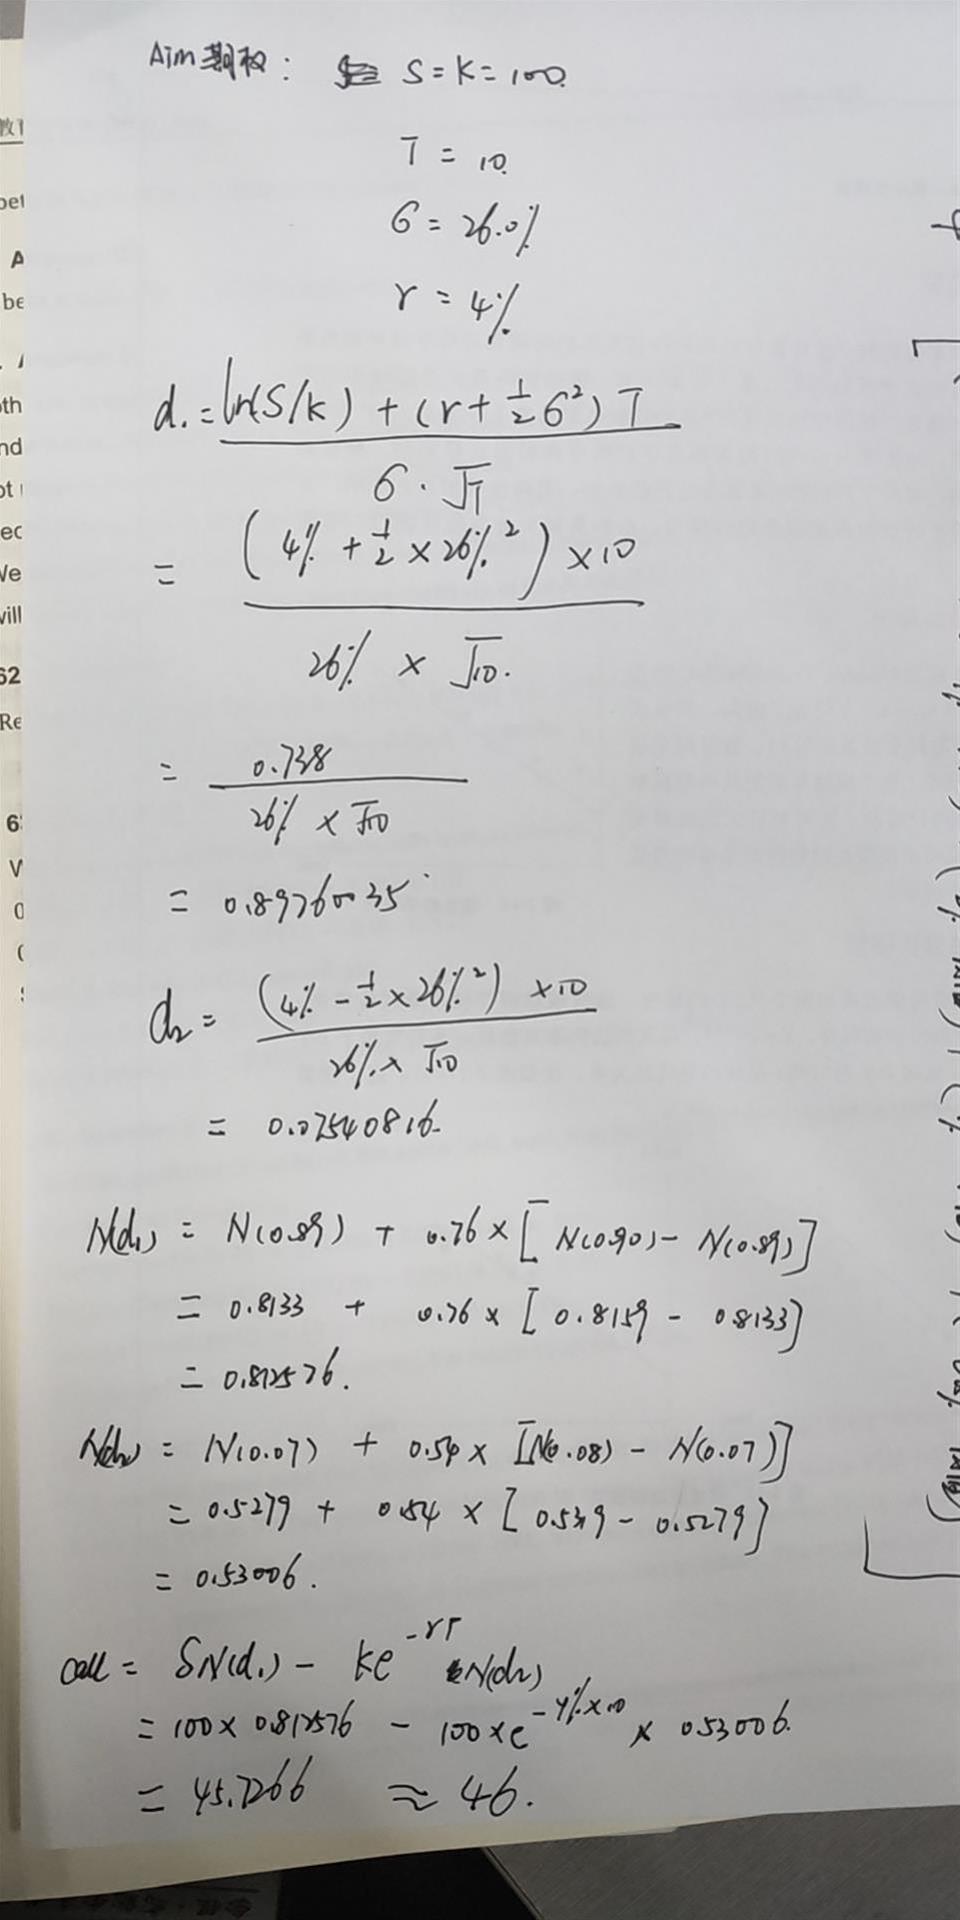 Aim期权: S = K = 100.
T = 10.
σ = 26.0%
r = 4%.
d₁ = ln(S/K) + (r + 1/2 σ²) T
σ · √T
= (4% + 1/2 × 26%²) × 10
26% × √10.
= 0.738
26% × √10
= 0.89760035
d₂ = (4% - 1/2 × 26%²) × 10
26% × √10
= 0.07540816.
N(d₁) = N(0.89) + 0.76 × [N(0.90) - N(0.89)]
= 0.8133 + 0.76 × [0.8159 - 0.8133]
= 0.812576.
N(d₂) = N(0.07) + 0.54 × [N(0.08) - N(0.07)]
= 0.5279 + 0.54 × [0.5319 - 0.5279]
= 0.53006.
call = SN(d₁) - Ke^-rT N(d₂)
= 100 × 0.812576 - 100 × e^-4%×10 × 0.53006.
= 45.7266 ≈ 46.
教育
bet
A
be
oth
nd
ot
ec
We
will
62
Re